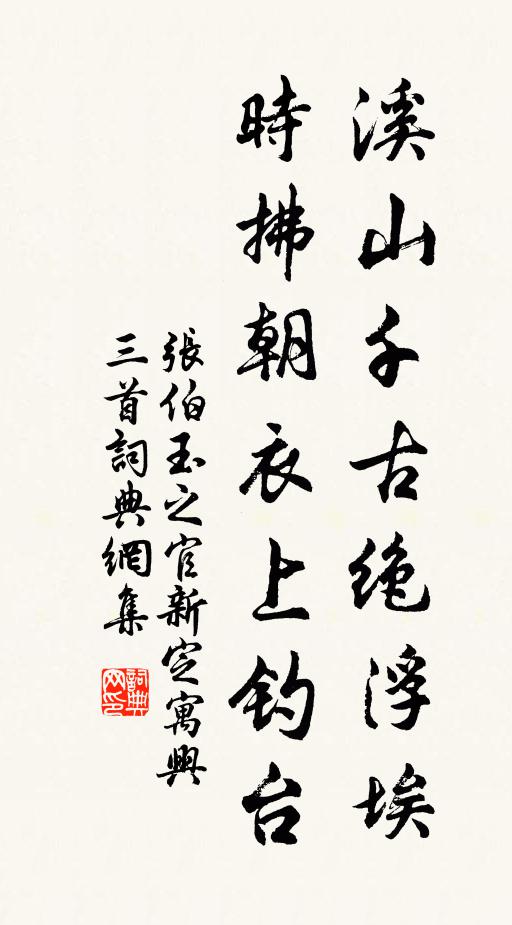 溪山千古絶浮埃
時拂朝衣上钓台
張伯玉之官新定寓興
三首詞典網集
詞典网印